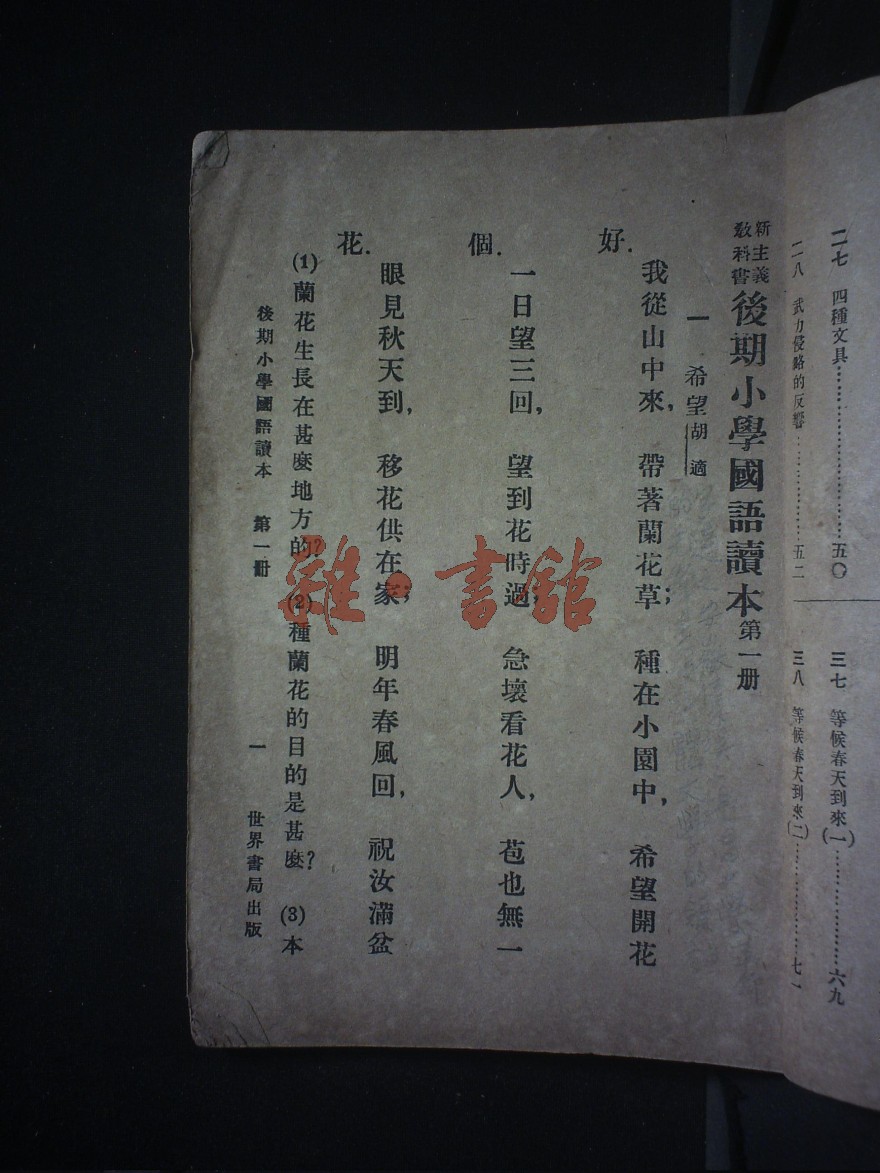 二七 四種文具……………………五〇
三七 等候春天到來(一)……………………六九
二八 武力侵略的反響……………………五二
三八 等候春天到來(二)……………………七一
新主義教科書 後期小學國語讀本 第一册
一 希望 胡適
我從山中來, 帶著蘭花草; 種在小園中, 希望開花
好.
一日望三回, 望到花時過; 急壞看花人, 苞也無一
個.
眼見秋天到, 移花供在家; 明年春風回, 祝汝滿盆
花.
(1)蘭花生長在甚麼地方的? (2)種蘭花的目的是甚麼? (3)本
後期小學國語讀本 第一册 一 世界書局出版
雜·書館